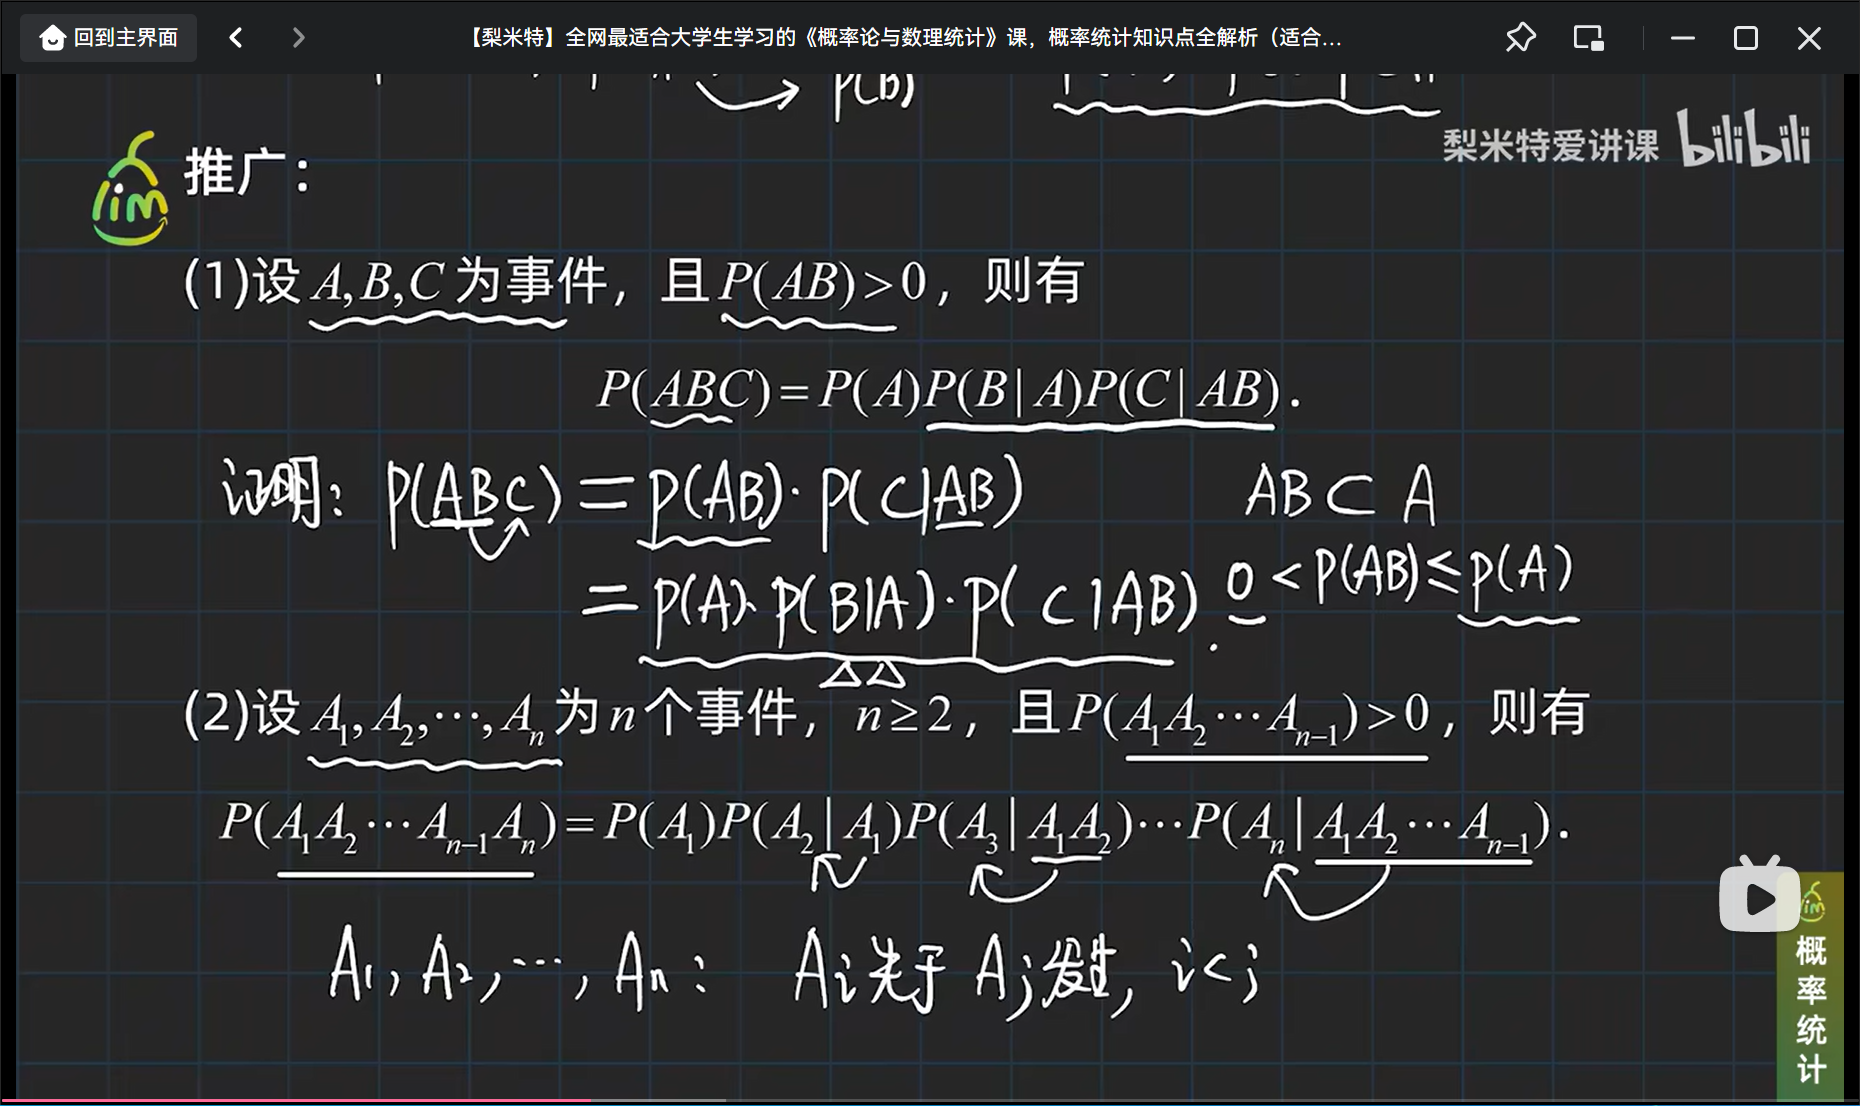 回到主界面
【梨米特】全网最适合大学生学习的《概率论与数理统计》课，概率统计知识点全解析（适合...
p(B)
梨米特爱讲课 bilibili
lim
推广：
(1)设 A,B,C 为事件，且 P(AB)>0，则有
P(ABC)=P(A)P(B|A)P(C|AB).
证明： P(ABC) = P(AB)·P(C|AB) AB⊂A
= P(A)·P(B|A)·P(C|AB). 0<P(AB)≤P(A)
(2)设 A₁,A₂,⋯,Aₙ 为 n 个事件，n≥2，且 P(A₁A₂⋯Aₙ₋₁)>0，则有
P(A₁A₂⋯Aₙ₋₁Aₙ)=P(A₁)P(A₂|A₁)P(A₃|A₁A₂)⋯P(Aₙ|A₁A₂⋯Aₙ₋₁).
A₁, A₂, ⋯, Aₙ： Aᵢ先于Aⱼ发生, i<j
lim
概率统计